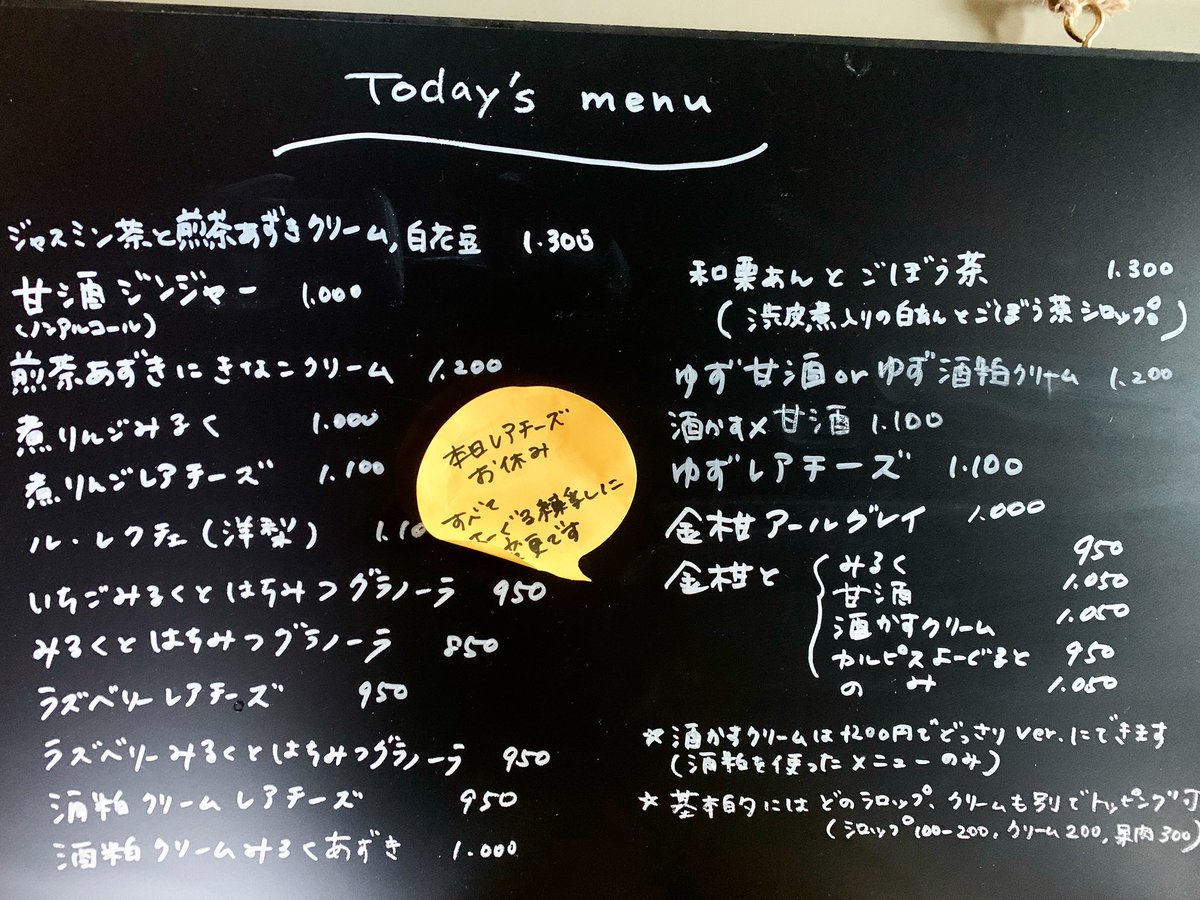 Today's menu
ジャスミン茶と煎茶あずきクリーム, 白花豆 1.300
甘酒ジンジャー 1.000
(ノンアルコール)
煎茶あずきにきなこクリーム 1.200
煮りんごみるく 1.000
煮りんごレアチーズ 1.100
ル・レクチェ(洋梨) 1.10
いちごみるくとはちみつグラノーラ 950
みるくとはちみつグラノーラ 850
ラズベリーレアチーズ 950
ラズベリーみるくとはちみつグラノーラ 950
酒粕クリームレアチーズ 950
酒粕クリームみるくあずき 1.000
本日レアチーズ
お休み
すべて
よーぐる練乳しに
変更です
和栗あんとごぼう茶 1.300
(渋皮煮入りの白あんとごぼう茶シロップ)
ゆず甘酒orゆず酒粕クリーム 1.200
酒かす×甘酒 1.100
ゆずレアチーズ 1.100
金柑アールグレイ 1.000
金柑と
みるく 950
甘酒 1.050
酒かすクリーム 1.050
カルピスよーぐると 950
のみ 1.050
* 酒かすクリームは+200円でどっさりver.にできます
(酒粕を使ったメニューのみ)
* 基本的にはどのシロップ、クリームも別でトッピング可
(シロップ100-200, クリーム200, 果肉300)